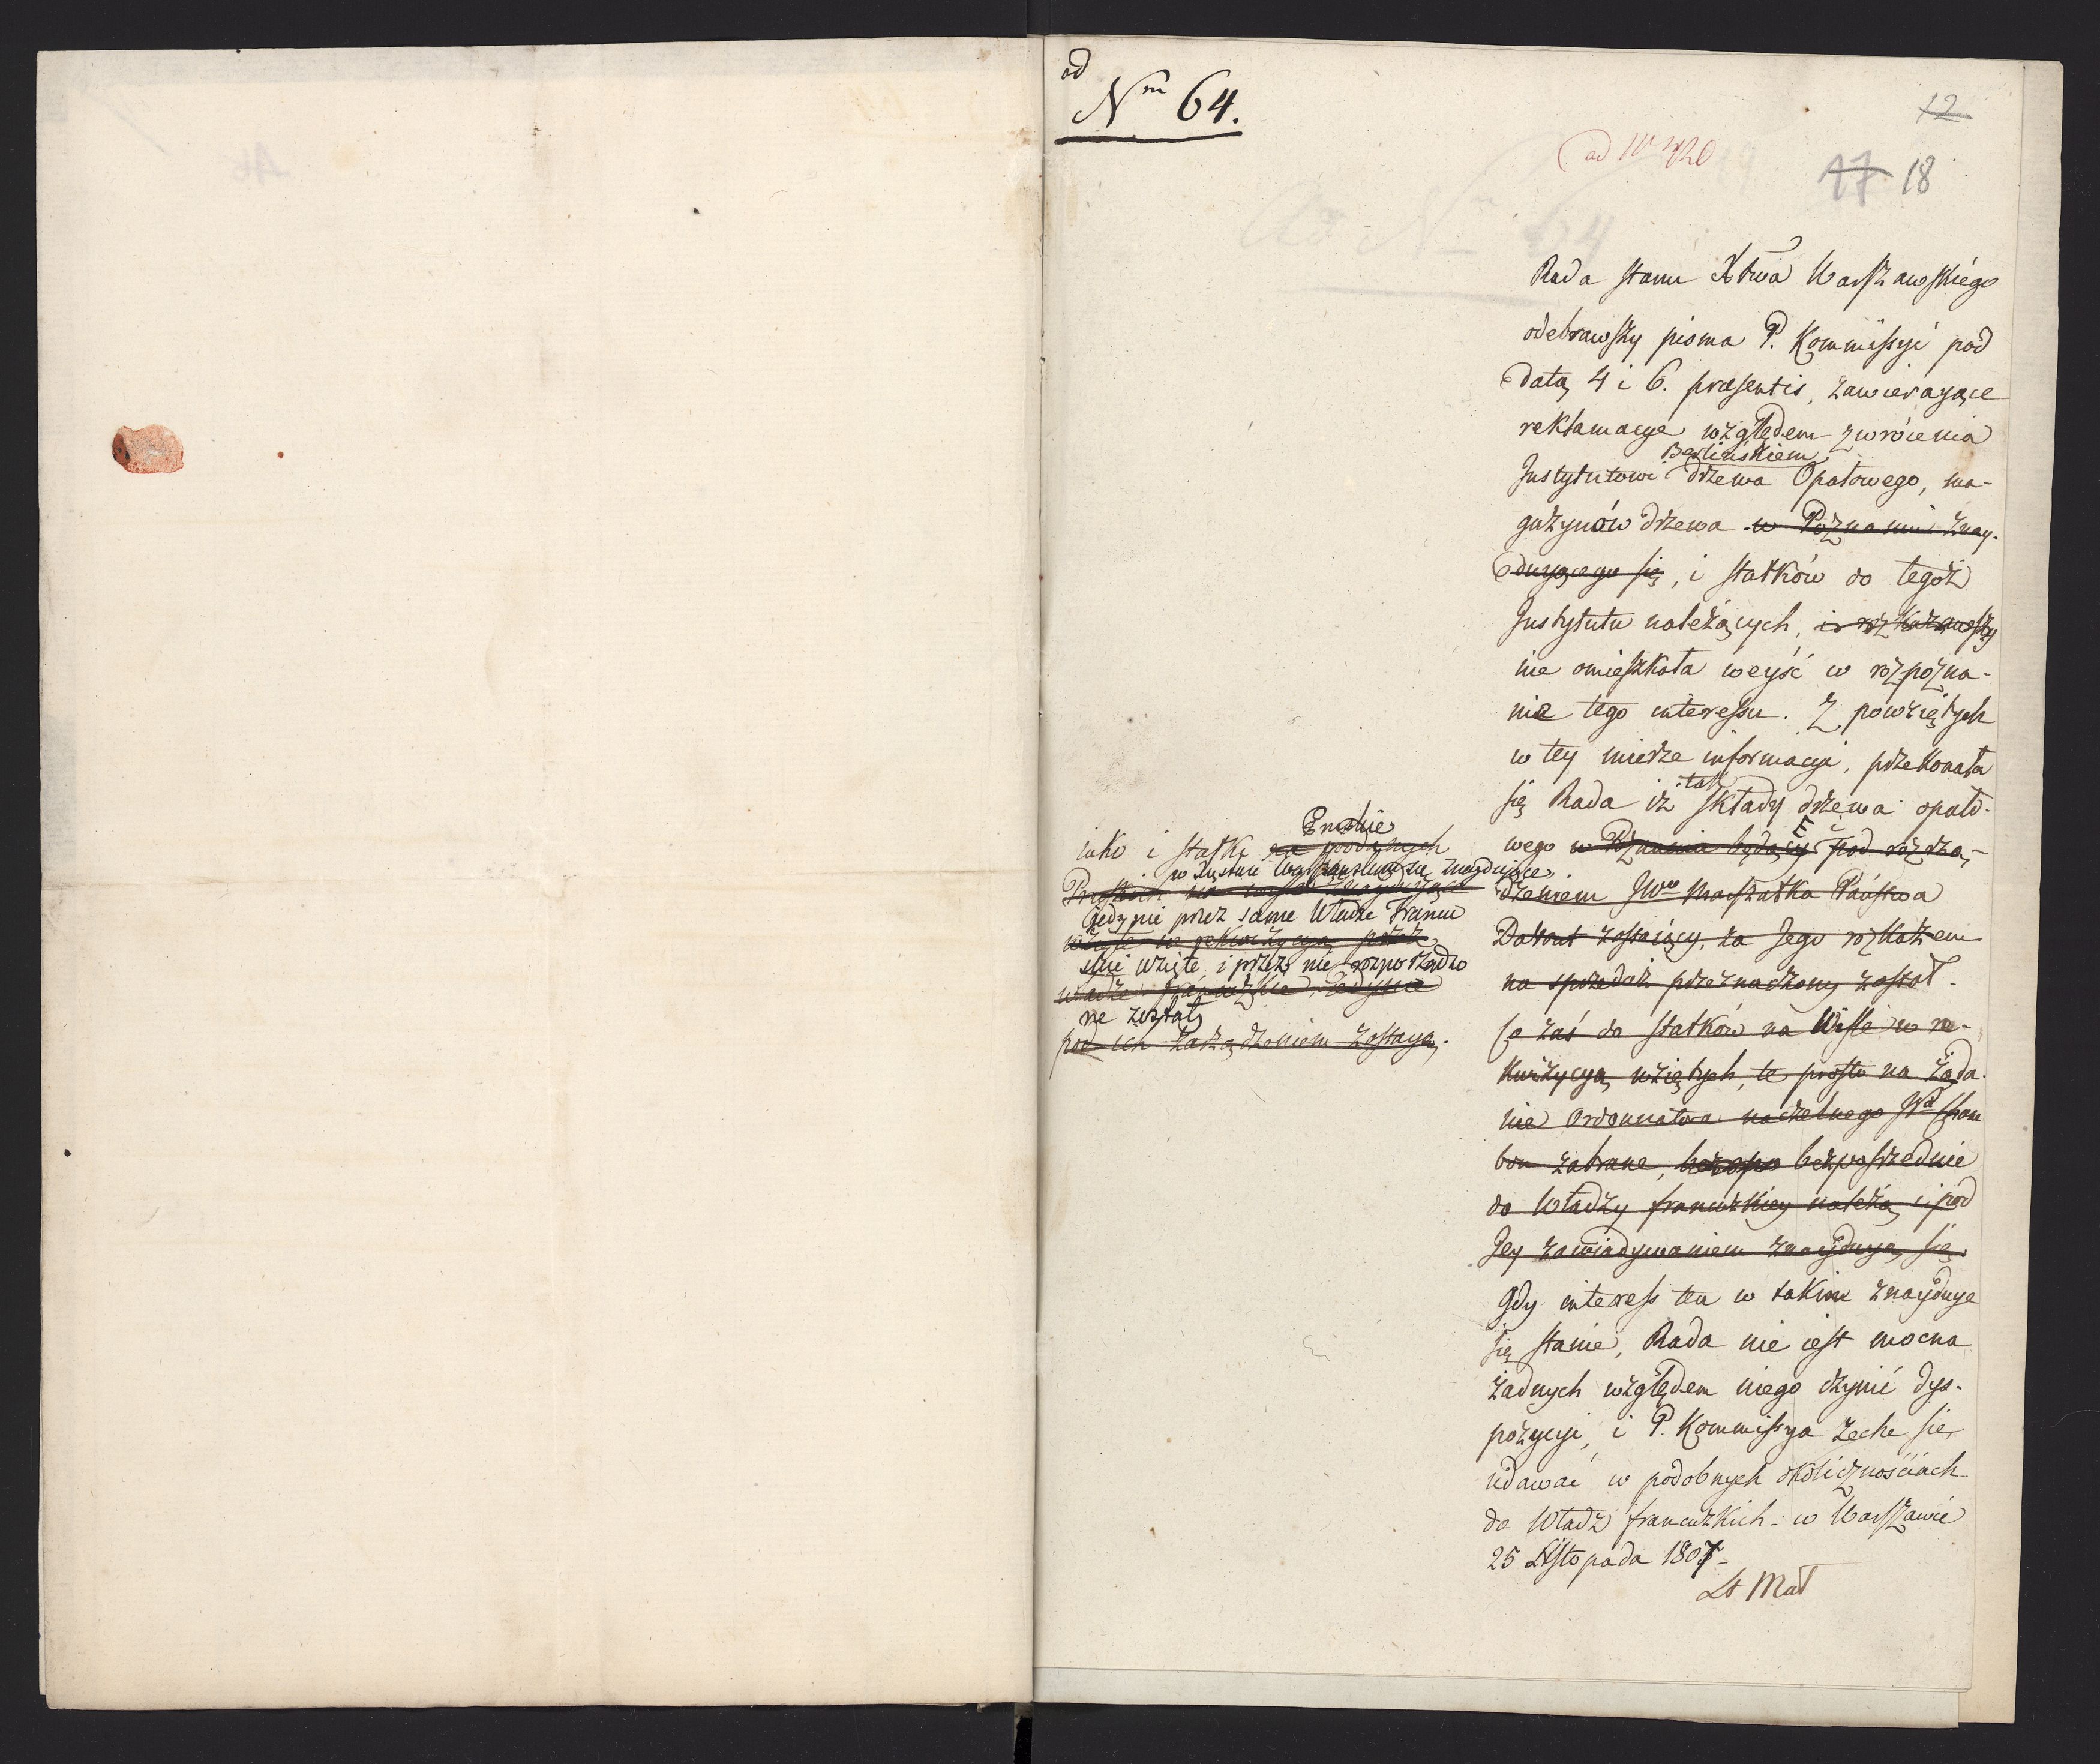 ad
Nrm 64.
12
ad N 420
17 18
Rada stanu Xtwa Warszawskiego
odebrawszy pisma P. Kommissyi pod
datą 4 i 6. praesentis, zawierayące
reklamacye względem zwrócenia
Berlińskiem
Instytutowi drzewa Opałowego, ma-
gazynów drzewa w Poznaniu znay-
duyącego się, i statków do tegoż
Instytutu należących, i rozkazawszy
nie omieszkała weyść w rozpozna-
nie tego interessu. Z powziętych
w tey mierze informacyi, przekonała
się Rada iż tak składy drzewa opało-
wego w Poznaniu będący pod rozrzą-
dzeniem JWo Marszałka Państwa
Davout zostaiący, za Jego rozkazem
na sprzedaż przeznaczony został.
Co zaś do statków na Wiśle w re-
kwizycyą wziętych, te prosto na żąda-
nie Ordonnatora naczelnego JPa Cham
bon zabrane, bezpośrzednie
do Władzy francuzkiey należą i pod
Jey zawiadywaniem znayduyą się.
Gdy interess ten w takim znayduye
się stanie, Rada nie iest mocna
żadnych względem niego czynić dys-
pozycyi, i P. Kommissya zechce się
udawać w podobnych okolicznościach
do Władz francuzkich w Warszawie
25 Listopada 1807
St Mał
Pruskie
iako i statki na
w Xięstwie Warszawskim się znayduiące
Pruskich
iedynie przez same Władze Francu
wzięte w rekwizycyą przez
skie wzięte, i przez nie rozporządzo
władze francuzkie, iedynie
ne zostały
pod ich zarządzeniem zostayą.